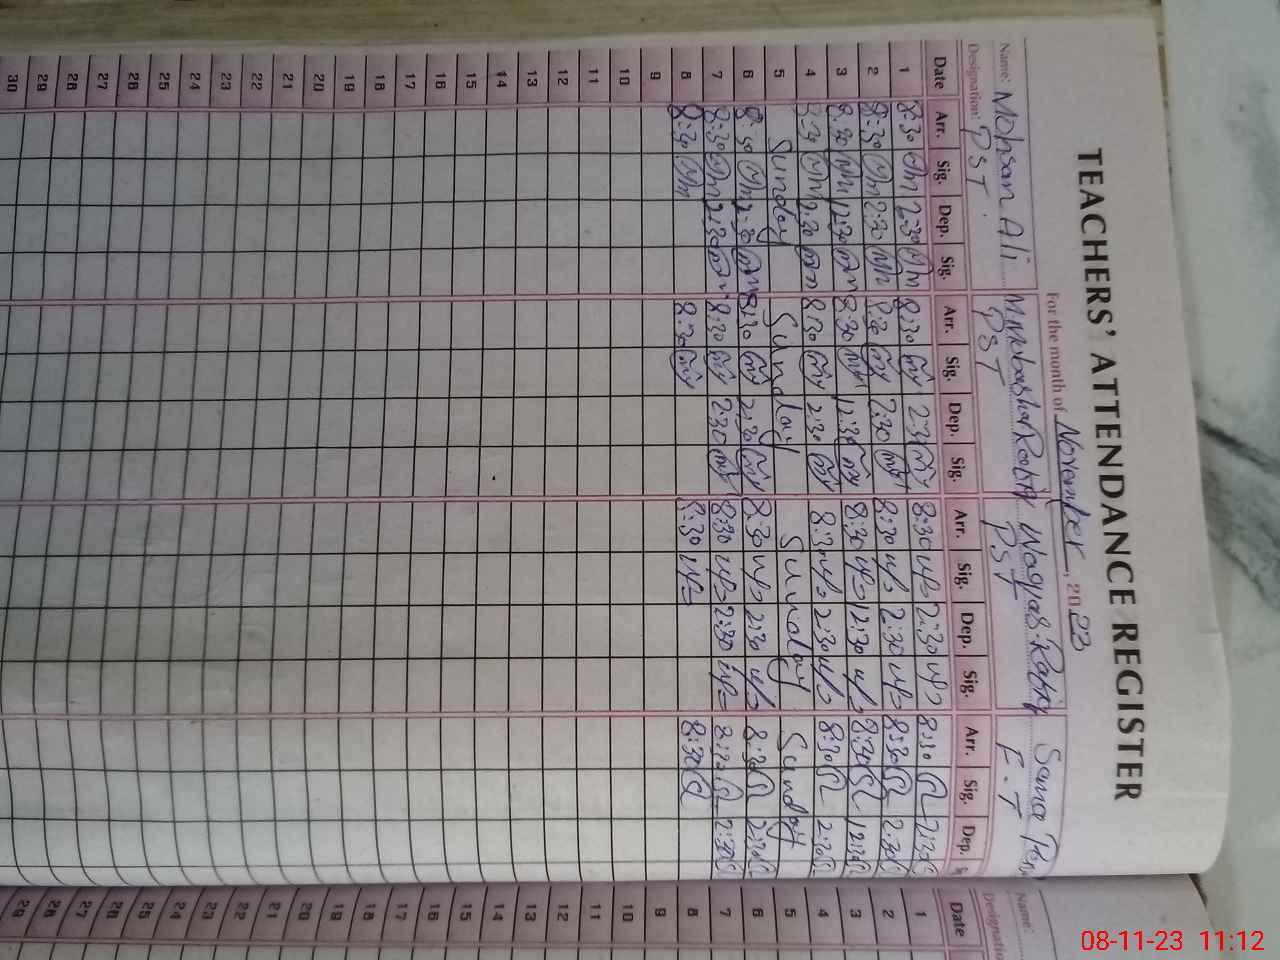 TEACHERS' ATTENDANCE REGISTER
For the month of November, 2023
Name: Mohsan Ali Waqas Rafiq Sana
Designation: PST. PST PST E.T
Date Arr. Sig. Dep. Sig. Arr. Sig. Dep. Sig. Arr. Sig. Dep. Sig. Arr. Sig. Dep. S
1 8:30 2:30 8:30 2:30 8:30 2:30 8:30 2:30
2 8:30 2:30 8:30 2:30 8:30 2:30 8:30 2:30
3 8:30 12:30 8:30 12:30 8:30 12:30 8:30 12:30
4 8:30 2:30 8:30 2:30 8:30 2:30 8:30 2:30
5 Sunday Sunday Sunday Sunday
6 8:30 2:30 8:30 2:30 8:30 2:30 8:30 2:30
7 8:30 2:30 8:30 2:30 8:30 2:30 8:30 2:30
8 8:30 8:30 8:30 8:30
9
10
11
12
13
14
15
16
17
18
19
20
21
22
23
24
25
26
27
28
29
30
Name:
Designatio
Date
1
2
3
4
5
6
7
8
9
10
11
12
13
14
15
16
17
18
19
20
21
22
23
24
25
26
27
28
29
08-11-23 11:12